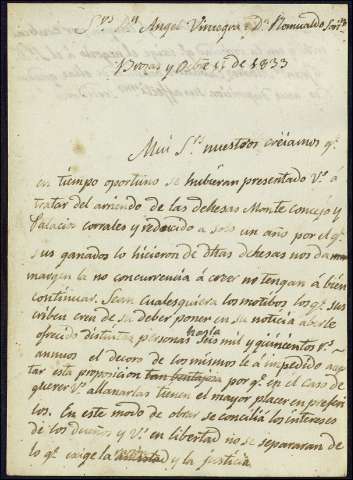 S.res D.n Angel Viniegra y D.n Romualdo
Brozas y 11 de 1833
Mui S.r nuestros creiamos q.e
en tiempo oportuno se hubieran presentado V.s á
tratar del arriendo de las dehesas Monte concejo y
Palacios corrales y reducido a solo un año por el q.e
sus ganados lo hicieron de dhas dehesas nos da
margen la no concurrencia á creer no tengan á bien
continuar. Sean cualesquiera los motibos los q.e sus
criben creen de su deber poner en su noticia aberle
ofrecido distintas personas hasta seis mil y quinientos r.s
annuos el decoro de los mismos le á impedido acep
tar esta proposicion tan bentajosa por q.e en el caso de
querer V.s allanarlas tienen el mayor placer en preferir
los. En este modo de obrar se concilia los intereses
de los dueños y V.s en libertad no se separaran de
lo q.e exige la y la justicia